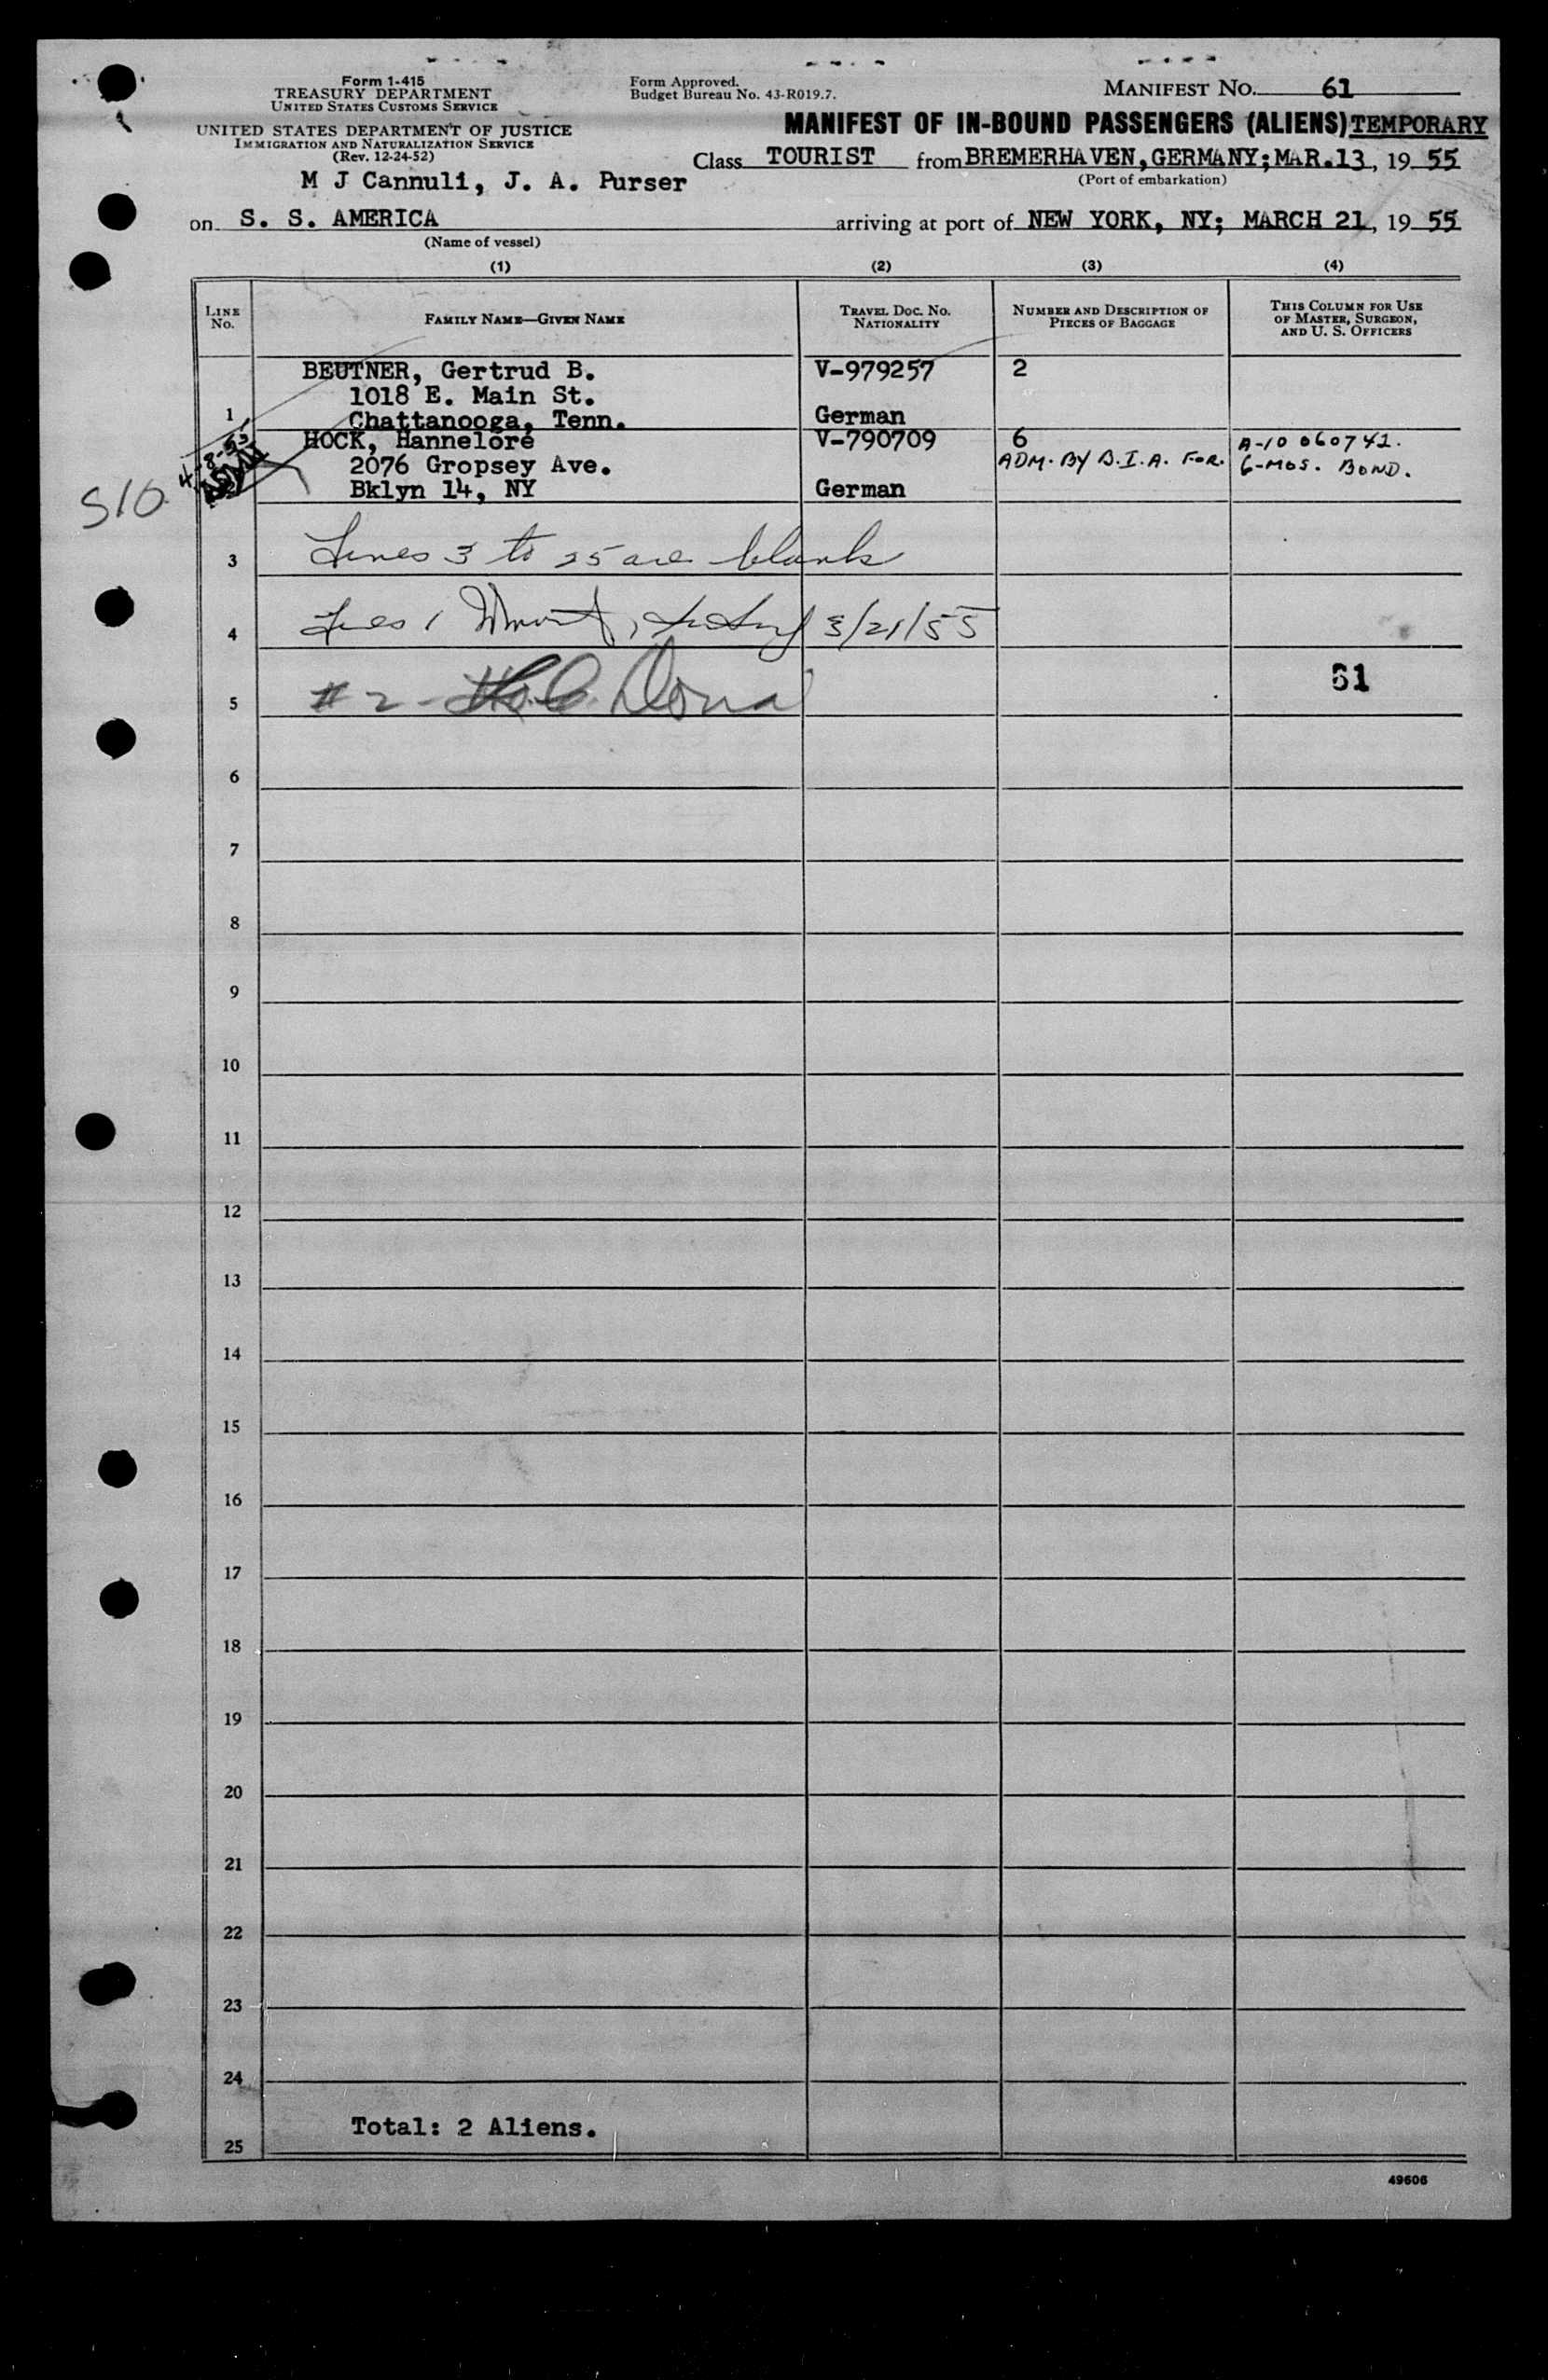 Form 1-415
TREASURY DEPARTMENT
UNITED STATES CUSTOMS SERVICE
UNITED STATES DEPARTMENT OF JUSTICE
IMMIGRATION AND NATURALIZATION SERVICE
(Rev. 12-24-52)
Form Approved.
Budget Bureau No. 43-R019.7.
MANIFEST NO. 61
MANIFEST OF IN-BOUND PASSENGERS (ALIENS) TEMPORARY
Class TOURIST from BREMERHAVEN, GERMANY; MAR.13, 19 55
(Port of embarkation)
M J Cannuli, J. A. Purser
on S. S. AMERICA arriving at port of NEW YORK, NY; MARCH 21, 19 55
(Name of vessel)
(1) (2) (3) (4)
LINE No. FAMILY NAME—GIVEN NAME TRAVEL DOC. NO. NATIONALITY NUMBER AND DESCRIPTION OF PIECES OF BAGGAGE THIS COLUMN FOR USE OF MASTER, SURGEON, AND U. S. OFFICERS
BEUTNER, Gertrud B. V-979257 2
1018 E. Main St.
1 Chattanooga, Tenn. German
HOCK, Hannelore V-790709 6 A-10 060742.
2076 Gropsey Ave. ADM. BY B.I.A. FOR. 6-MOS. BOND.
Bklyn 14, NY German
4-8-55
ADMIT
S10
3 Lines 3 to 25 are blank
4 3/21/55
5 # 2 - 61
6
7
8
9
10
11
12
13
14
15
16
17
18
19
20
21
22
23
24
Total: 2 Aliens.
25
49606